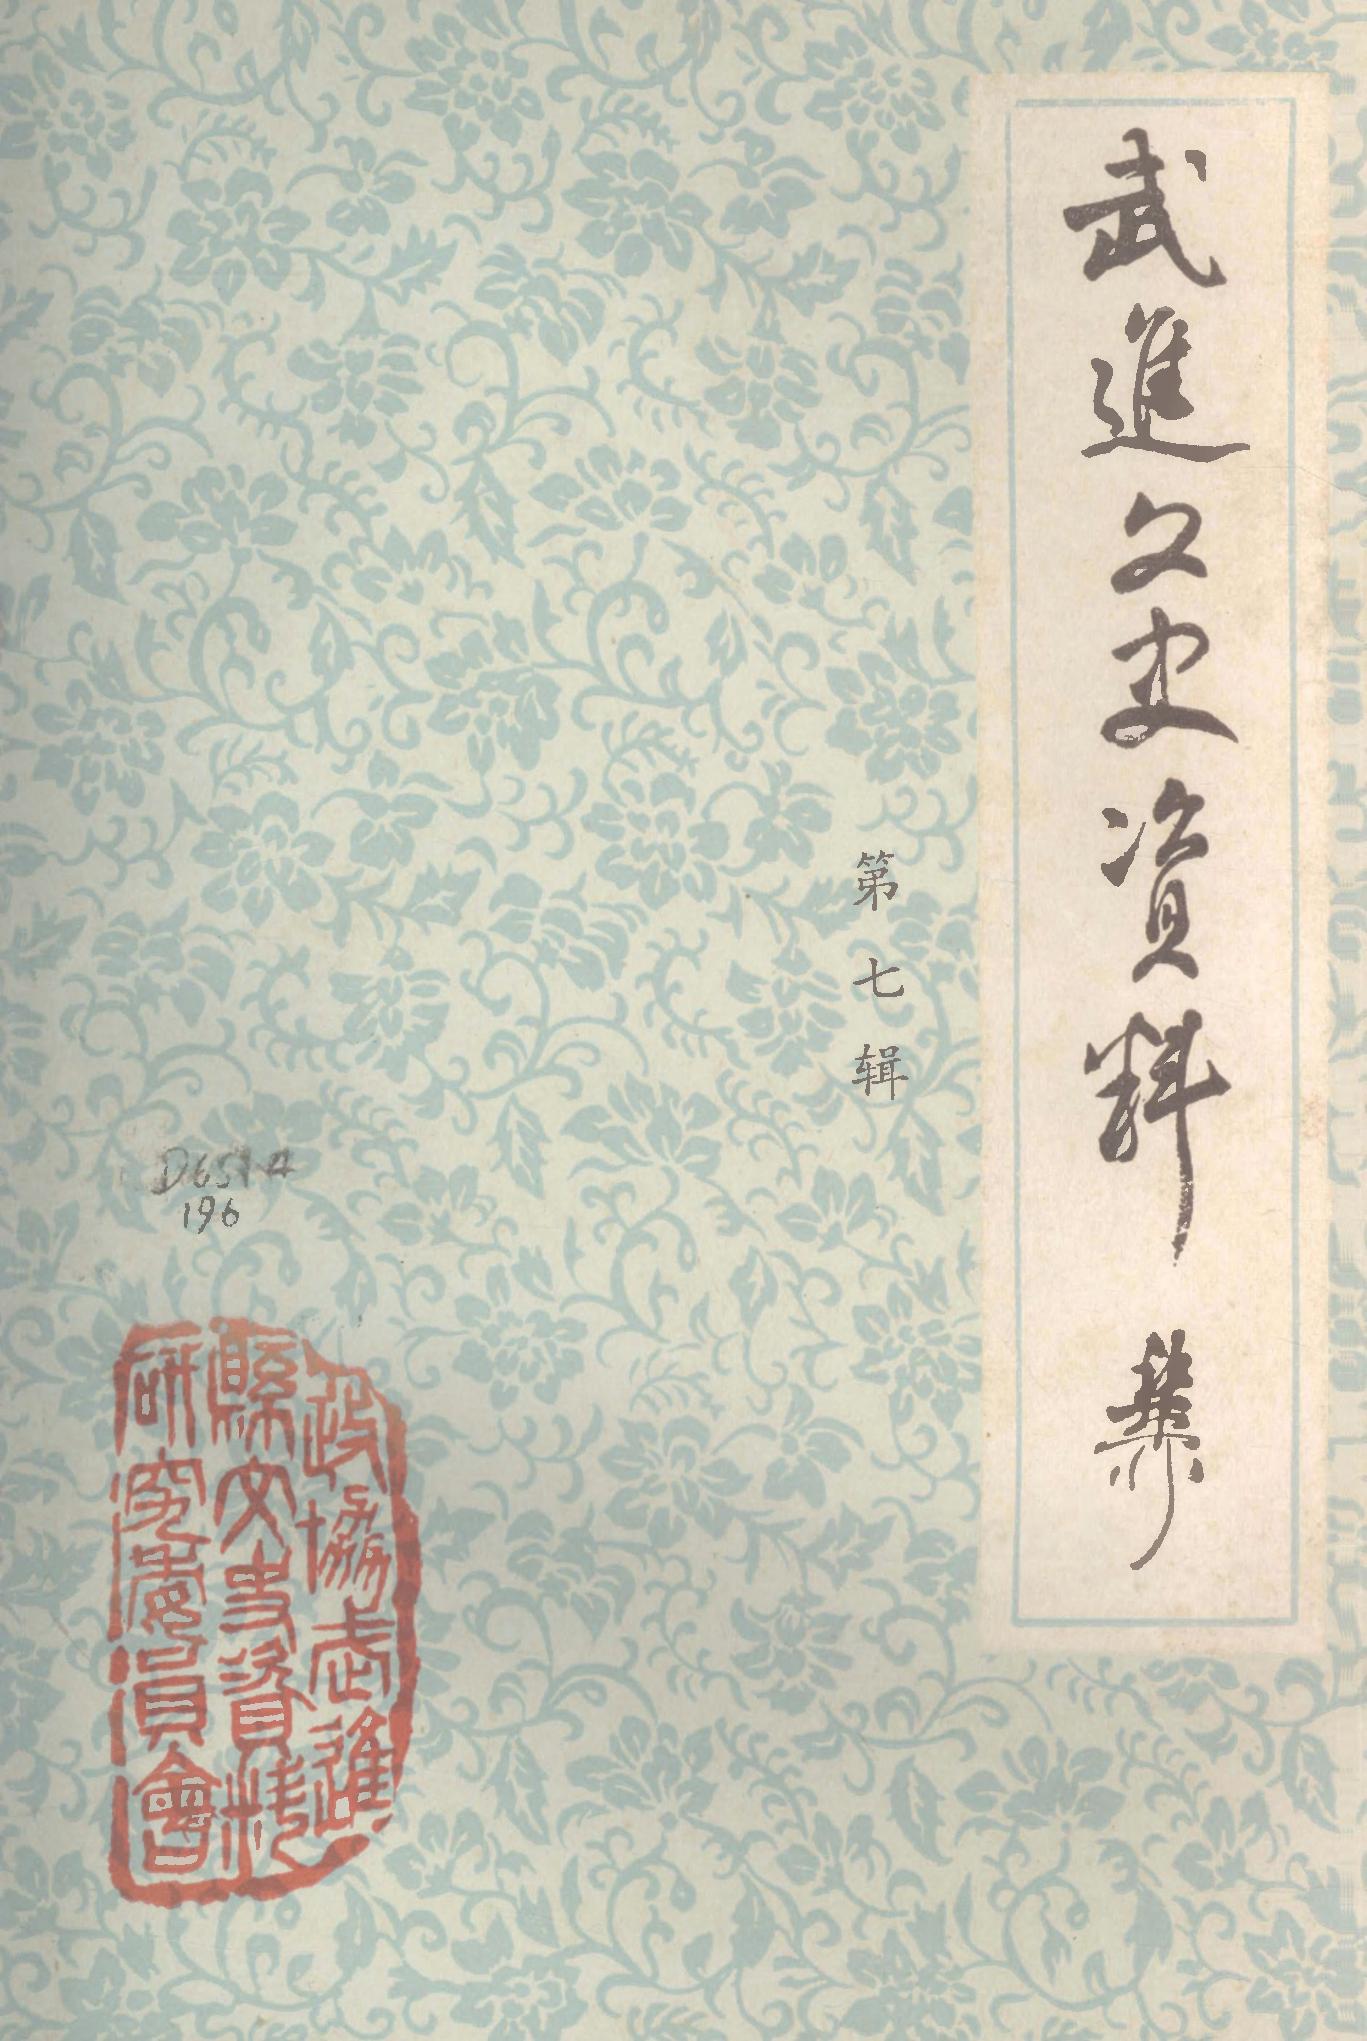 武進文史资料
第七辑
D651.4
196
政協武進
縣文史資料
研究委員會